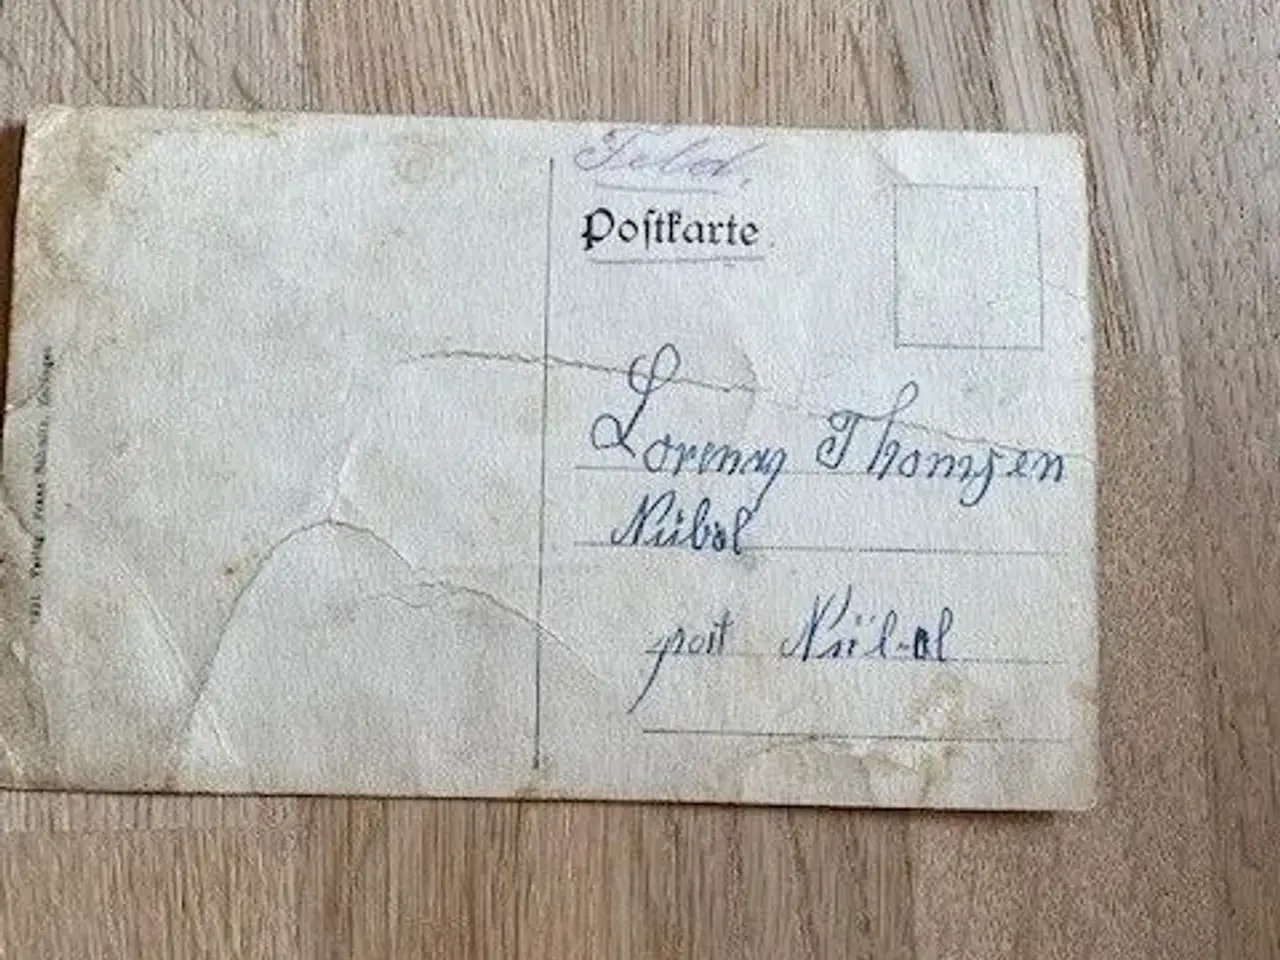 Feld.
Postkarte
Lorenz Thomsen
Nübel
post Nübel
Verlag